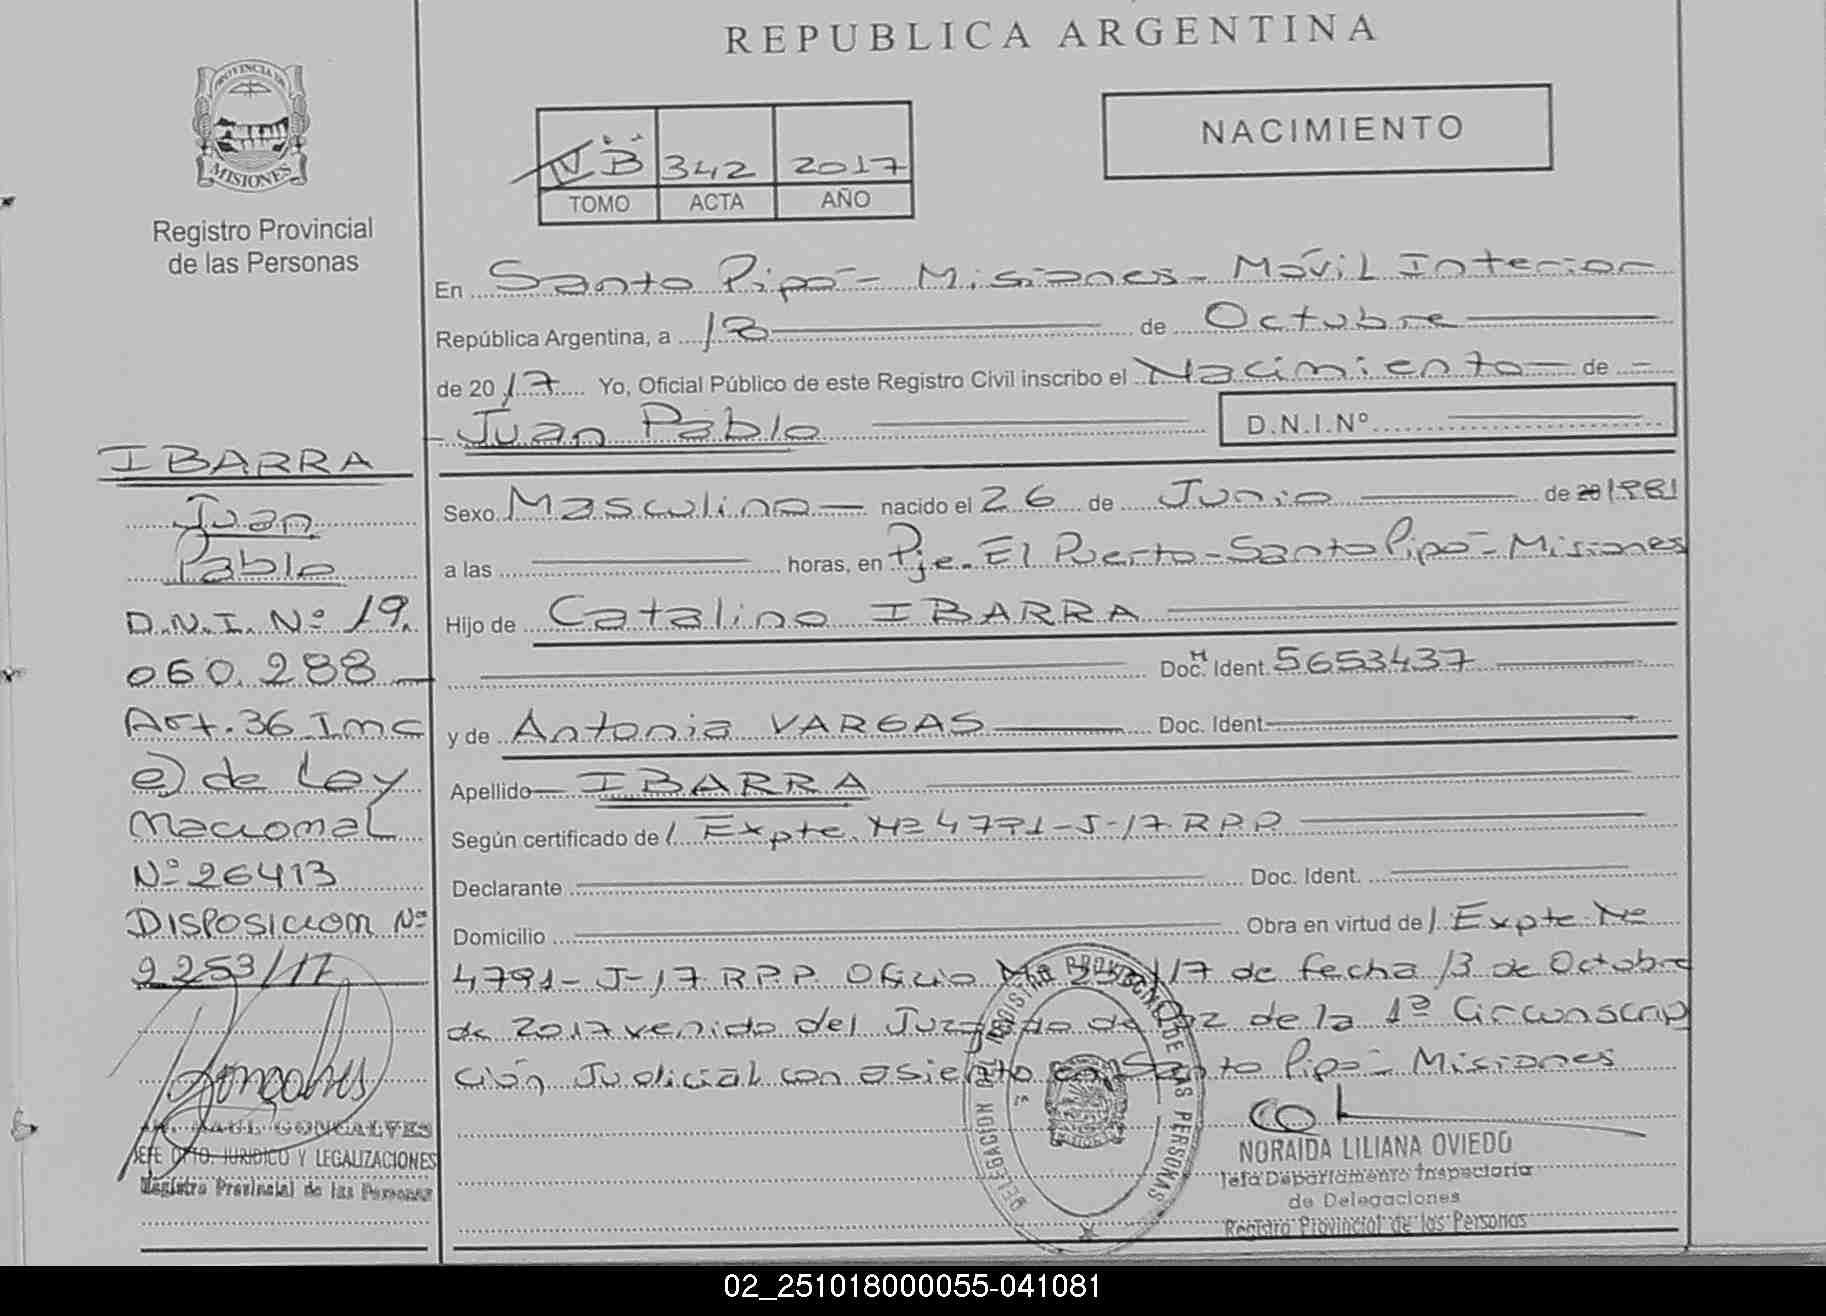 REPUBLICA ARGENTINA
PROVINCIA DE
MISIONES
Registro Provincial
de las Personas
NACIMIENTO
IV "B" 342 2017
TOMO ACTA AÑO
En Santo Pipó - Misiones - Móvil Interior
República Argentina, a 18 de Octubre
de 2017 Yo, Oficial Público de este Registro Civil inscribo el Nacimiento de
Juan Pablo D.N.I.Nº
Sexo Masculino nacido el 26 de Junio de 20 1981
a las horas, en Pje. El Puerto - Santo Pipó - Misiones
Hijo de Catalino IBARRA
Doc. M Ident. 5653437
y de Antonia VARGAS Doc. Ident.
Apellido IBARRA
Según certificado de / Expte. Nº 4791-J-17 R.P.P.
Declarante Doc. Ident.
Domicilio Obra en virtud de / Expte Nº
4791-J-17 R.P.P. Oficio Nº /17 de fecha 13 de Octubre
de 2017 venido del Juzgado de Paz de la 1ª Circunscrip
ción Judicial con asiento en Santo Pipó - Misiones
IBARRA
Juan
Pablo
D.N.I. Nº 19.
060.288
Art. 36 Inc
e) de Ley
Nacional
Nº 26413
DISPOSICION Nº
2253/17
RAUL GONCALVES
JEFE DPTO. JURIDICO Y LEGALIZACIONES
Registro Provincial de las Personas
DELEGACION DEL REGISTRO PROVINCIAL DE LAS PERSONAS
NORAIDA LILIANA OVIEDO
Jefa Departamento Inspectoría
de Delegaciones
Registro Provincial de las Personas
02_251018000055-041081